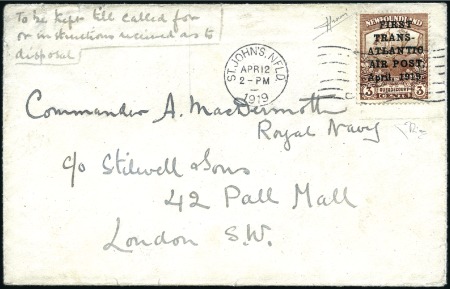 To be kept till called for
or instructions received as to
disposal
ST. JOHN'S, NFLD.
APR 12
2 - PM
1919
NEWFOUNDLAND
FIRST
TRANS-
ATLANTIC
AIR POST,
April, 1919.
3 CENTS 3
Commander A. MacDermott
Royal Navy
c/o Stilwell & Sons
42 Pall Mall
London S.W.